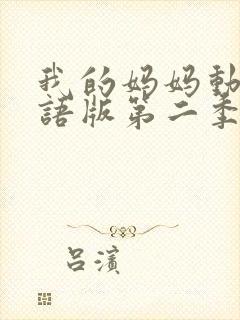 我的妈妈動
語版第二季
吕濱